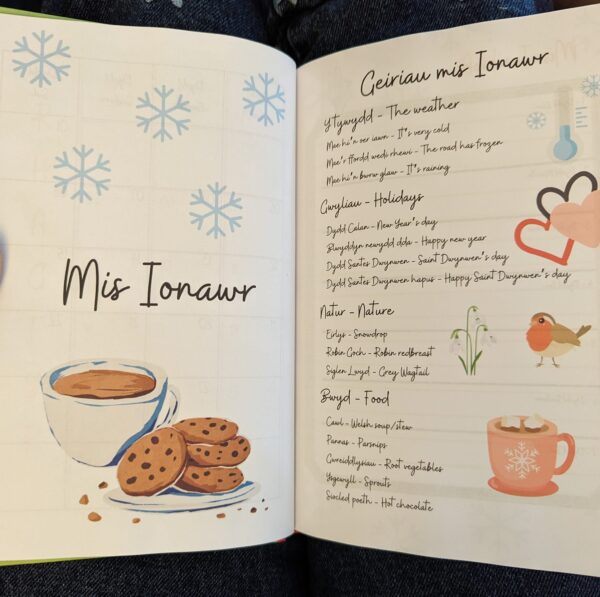 Mis Ionawr
Geiriau mis Ionawr
Y Tywydd - The weather
Mae hi'n oer iawn - It's very cold
Mae'r ffordd wedi rhewi - The road has frozen
Mae hi'n bwrw glaw - It's raining
Gwyliau - Holidays
Dydd Calan - New Year's day
Blwyddyn newydd dda - Happy new year
Dydd Santes Dwynwen - Saint Dwynwen's day
Dydd Santes Dwynwen hapus - Happy Saint Dwynwen's day
Natur - Nature
Eirlys - Snowdrop
Robin Goch - Robin redbreast
Siglen Lwyd - Grey Wagtail
Bwyd - Food
Cawl - Welsh soup/stew
Pannas - Parsnips
Gwreiddlysiau - Root vegetables
Ysgewyll - Sprouts
Siocled poeth - Hot chocolate